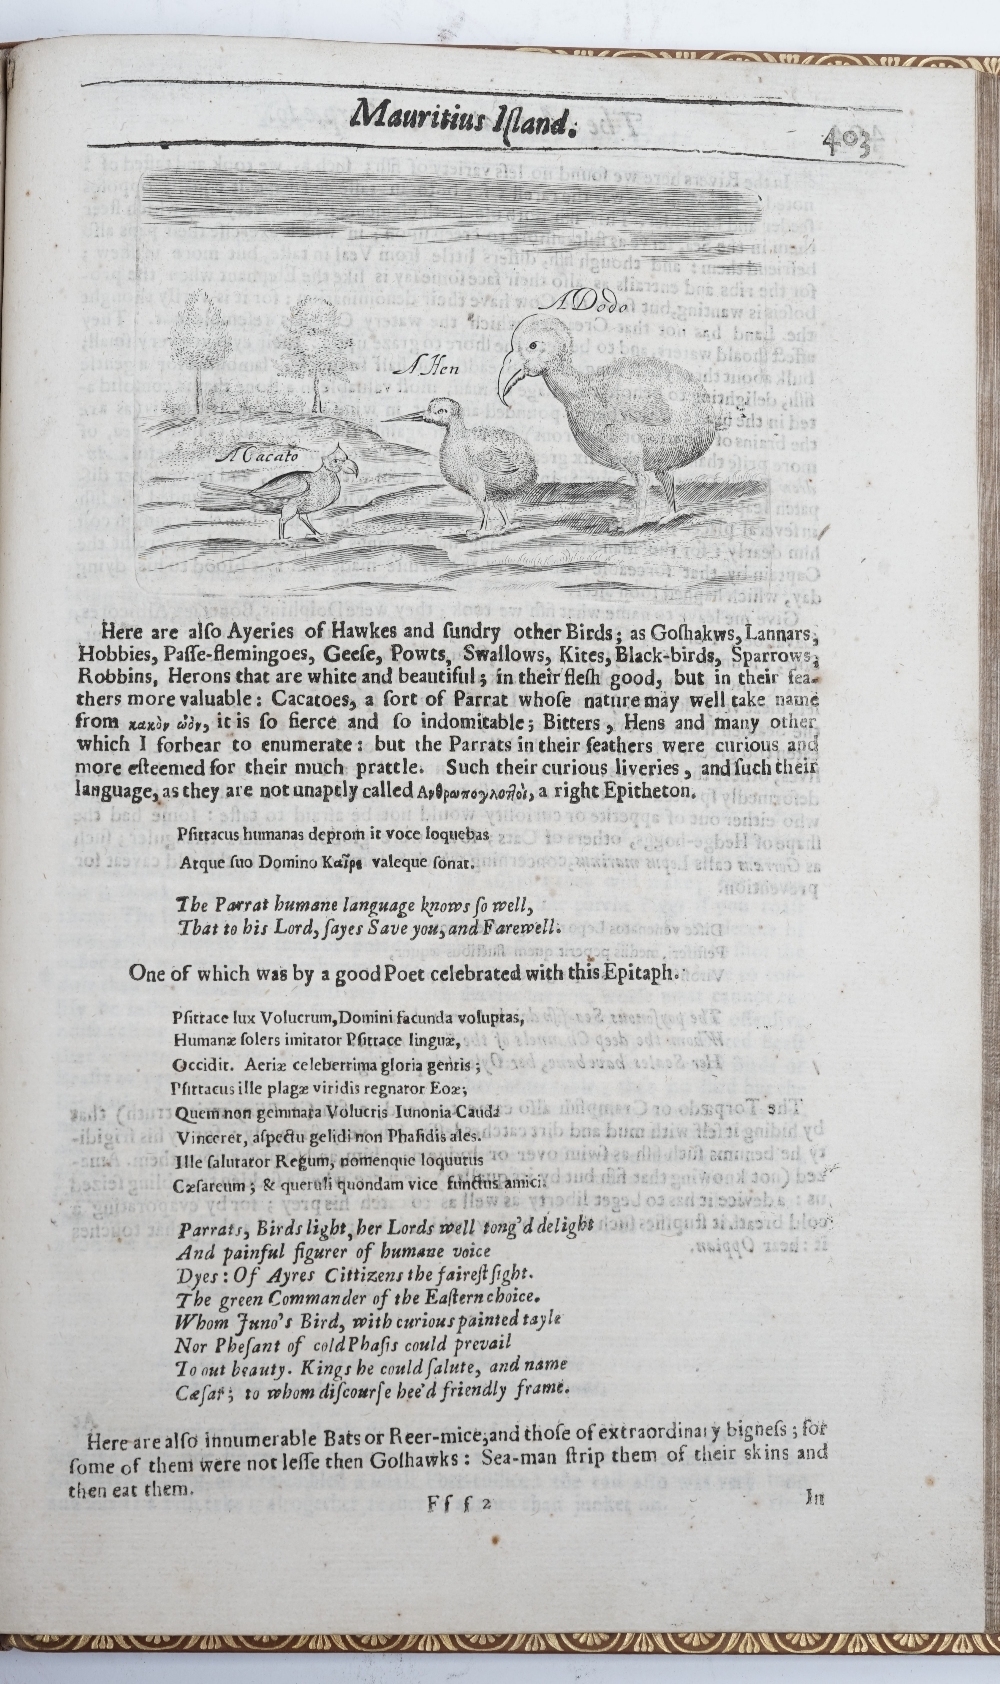 Mauritius Iſland.
403
A Dodo
A Hen
A Cacato
Here are alſo Ayeries of Hawkes and ſundry other Birds; as Goſhakws, Lannars,
Hobbies, Paſſe-flemingoes, Geeſe, Powts, Swallows, Kites, Black-birds, Sparrows,
Robbins, Herons that are white and beautiful; in their fleſh good, but in their fea-
thers more valuable: Cacatoes, a ſort of Parrat whoſe nature may well take name
from κακὸν ὠὸν, it is ſo fierce and ſo indomitable; Bitters, Hens and many other
which I forbear to enumerate: but the Parrats in their feathers were curious and
more eſteemed for their much prattle. Such their curious liveries, and ſuch their
language, as they are not unaptly called a right Epitheton.
Pſittacus humanas deprom it voce loquebas
Atque ſuo Domino Χαῖρε valeque ſonat.
The Parrat humane language knows ſo well,
That to his Lord, ſayes Save you, and Farewell.
One of which was by a good Poet celebrated with this Epitaph.
Pſittace lux Volucrum, Domini facunda voluptas,
Humanæ ſolers imitator Pſittace linguæ,
Occidit. Aeriæ celeberrima gloria gentis;
Pſittacus ille plagæ viridis regnator Eoæ;
Quem non gemmata Volucris Iunonia Cauda
Vinceret, aſpectu gelidi non Phaſidis ales.
Ille ſalutator Regum, nomenque loquutus
Cæſareum; & queruli quondam vice functus amici.
Parrats, Birds light, her Lords well tong'd delight
And painful figurer of humane voice
Dyes: Of Ayres Cittizens the faireſt ſight.
The green Commander of the Eaſtern choice.
Whom Juno's Bird, with curious painted tayle
Nor Pheſant of cold Phaſis could prevail
To out beauty. Kings he could ſalute, and name
Cæſar; to whom diſcourſe hee'd friendly frame.
Here are alſo innumerable Bats or Reer-mice, and thoſe of extraordinary bigneſs; for
ſome of them were not leſſe then Goſhawks: Sea-man ſtrip them of their skins and
then eat them.
Fſſ 2
In